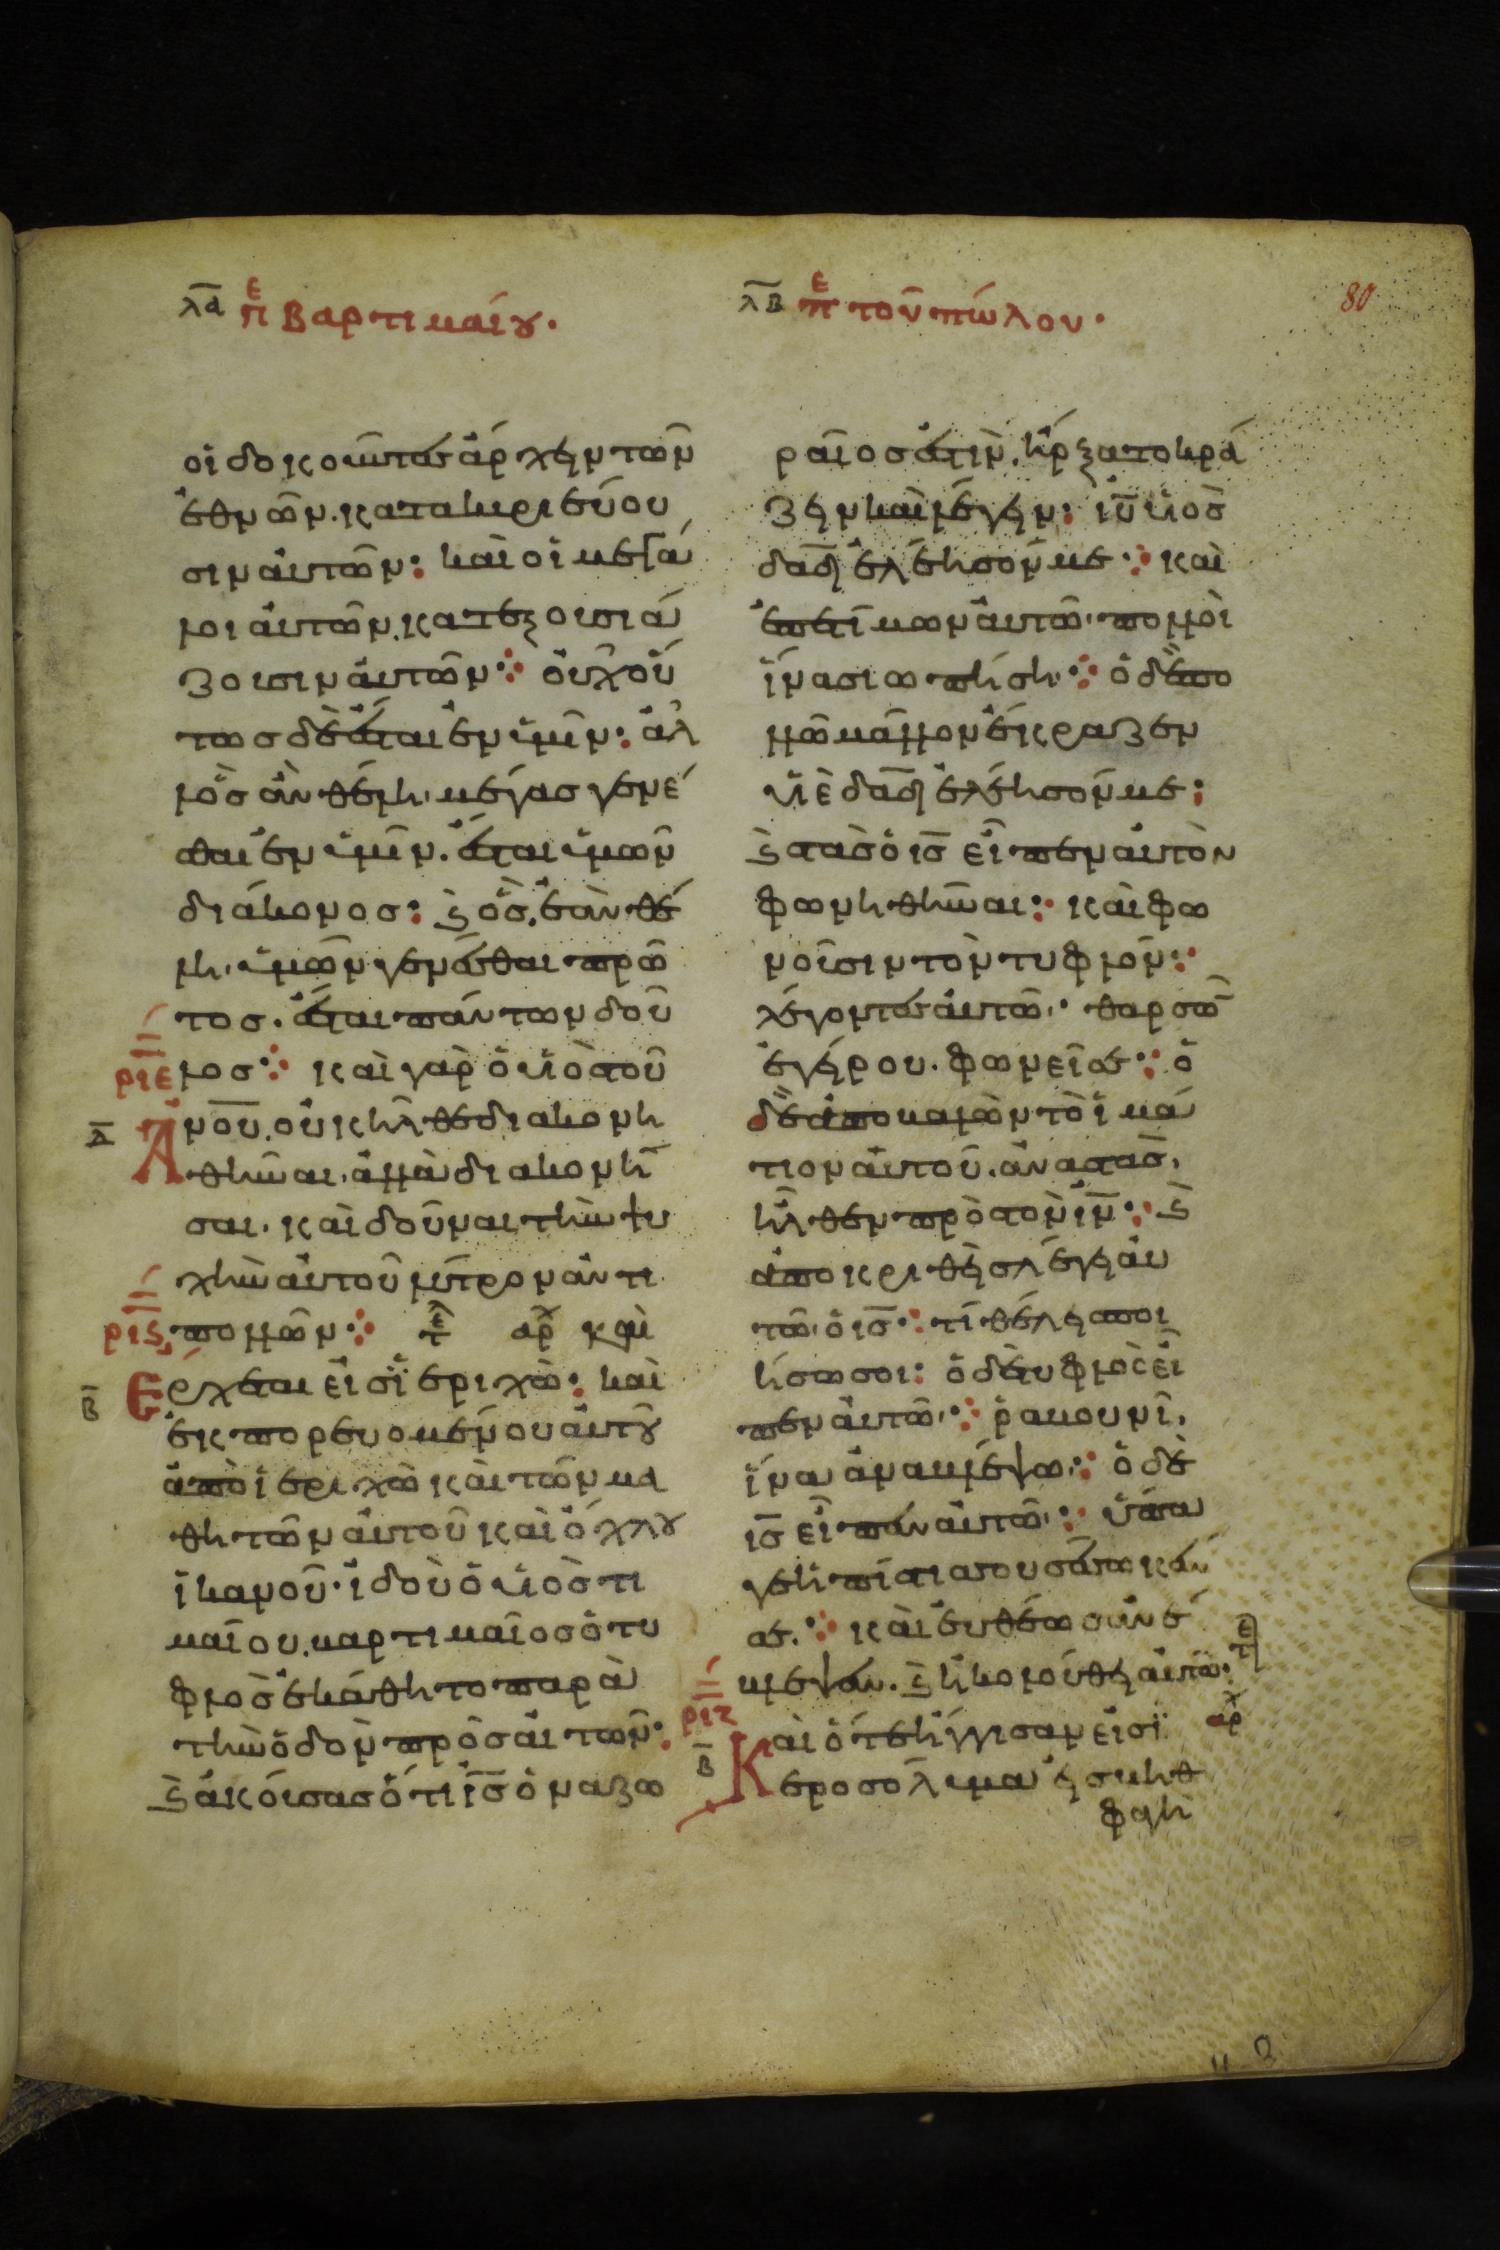 λα πε Βαρτιμαίου·
λβ πε τοῦ πώλου·
80
οἱ δοκοῦντες ἄρχειν τῶν
ἐθνῶν. κατακυριεύου
σιν αὐτῶν: καὶ οἱ μεγά
λοι αὐτῶν. κατεξουσιά
ζουσιν αὐτῶν· οὐχ οὕ
τως δὲ ἔσται ἐν ὑμῖν: ἀλ
λ' ὃς ἂν θέλη. μέγας γενέ
σθαι ἐν ὑμῖν. ἔσται ὑμῶν
διάκονος: καὶ ὃς ἐὰν θέ
λη. ὑμῶν γενέσθαι πρῶ
τος. ἔσται πάντων δοῦ
ριε λος· καὶ γὰρ ὁ υἱὸς τοῦ
δ Ἀνου. οὐκ ἦλθε διακονη
θῆναι. ἀλλὰ διακονῆ
σαι. καὶ δοῦναι τὴν ψυ
χὴν αὐτοῦ λύτρον ἀντὶ
ριϛ πολλῶν· τελ αρχ
β Ερχεται εἰσ ϊεριχὼ: καὶ
ἐκπορευομένου αὐτου
ἀπὸ ἱεριχὼ καὶ τῶν μα
θητῶν αὐτοῦ καὶ ὄχλου
ἱκανοῦ· ἰδοὺ ὁ υἱὸς τι
μαῖου. βαρτιμαῖος ὁ τυ
φλὸς ἐκάθητο παρὰ
τὴν ὁδὸν προσαιτῶν·
καὶ ἀκούσας ὅτι ις ὁ ναζω
ραῖος ἐστὶν. ἤρξατο κρά
ζειν καὶ λέγειν: ιυ υἱὸς
δαδ ἐλέησον με· καὶ
ἐπετίμων αὐτῶ. πολλοὶ
ἵνα σιωπήση· ὁ δὲ πο
λλῶ μᾶλλον ἔκραζεν
υἱὲ δαδ ἐλέησον με:
καὶ στὰς ὁ ις εἶπεν αὐτὸν
φωνηθῆναι: καὶ φω
νοῦσιν τὸν τυφλόν·
λέγοντες αὐτῶ· θαρσῶν
ἐγείρου. φωνεῖ σε· ὁ
δὲ ἀποβαλὼν τὸ ἱμά
τιον αὐτοῦ. ἀναστας.
ἦλθεν πρὸς τὸν ιν· καὶ
ἀποκριθεὶς λέγει αὐ
τῶ. ὁ ις· τί θέλεις ποι
ήσω σοι: ὁ δὲ τυφλὸς εἶ
πεν αὐτῶ· ῥαβουνῖ.
ἵνα ἀναβλέψω· ὁ δὲ
ις εἶπεν αὐτῶ· ὕπα
γε ἡ πίστις σου σέσωκέν
σε. καὶ εὐθέως ἀνέ
βλεψεν. καὶ ἠκολούθει αὐτῶ· τελ
ριζ
β Καὶ ὅτε ἤγγισαν εἰσ ϊ αρχ
εροσόλυμα εἰς βηθ
φαγὴ